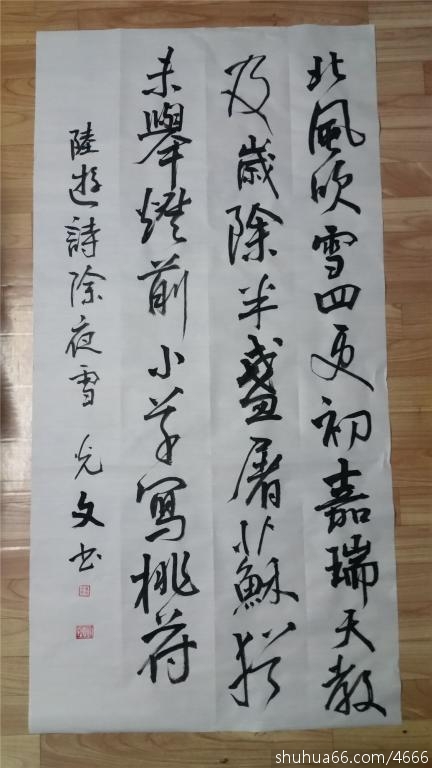 北風吹雪四更初嘉瑞天教
及歲除半盞屠蘇猶
未舉燈前小草寫桃符
陸遊詩除夜雪 光文书
shuhua66.com/4666